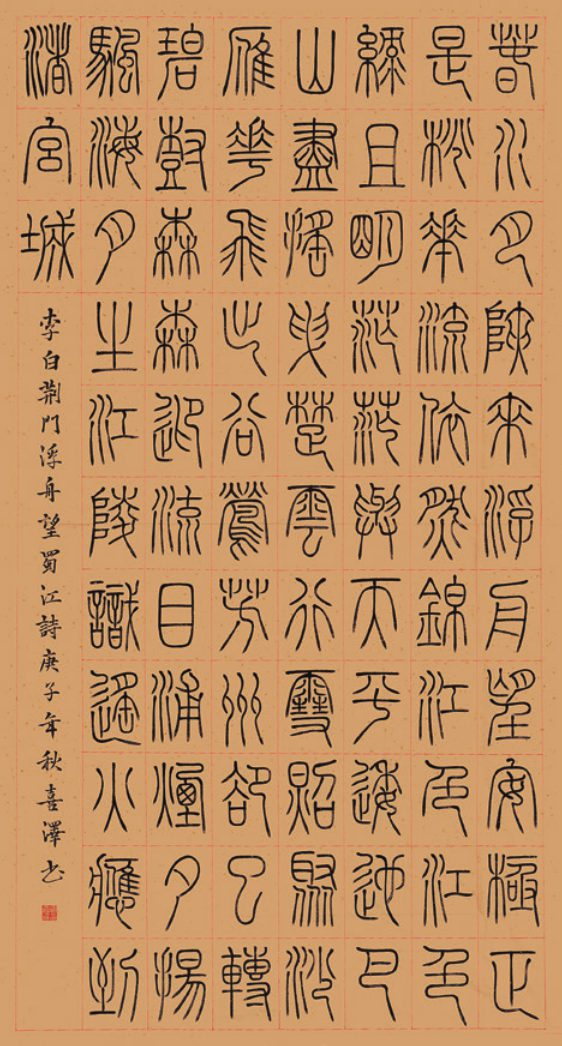 春水月陝來浮舟望安極正
是桃華流依然錦江色江色
綠且明茫茫與天平逶迆巴
山盡搖曳楚雲行雪照聚沙
雁華飛出谷鶯芳州卻已轉
碧尌森森迎流目浦煙夕揚
颿海月生江陵識遙火應到
渚宮城
李白荊門浮舟望蜀江詩庚子年秋喜澤书